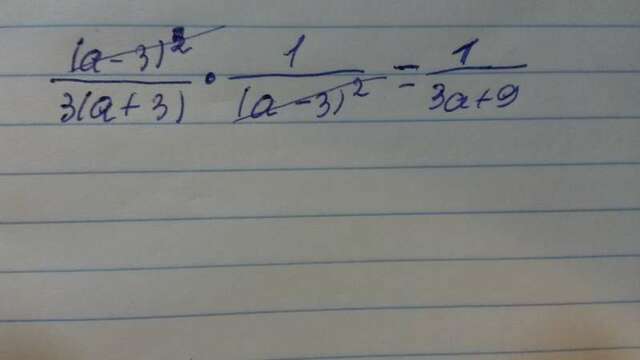 (a-3)² / 3(a+3) • 1 / (a-3)² = 1 / 3a+9